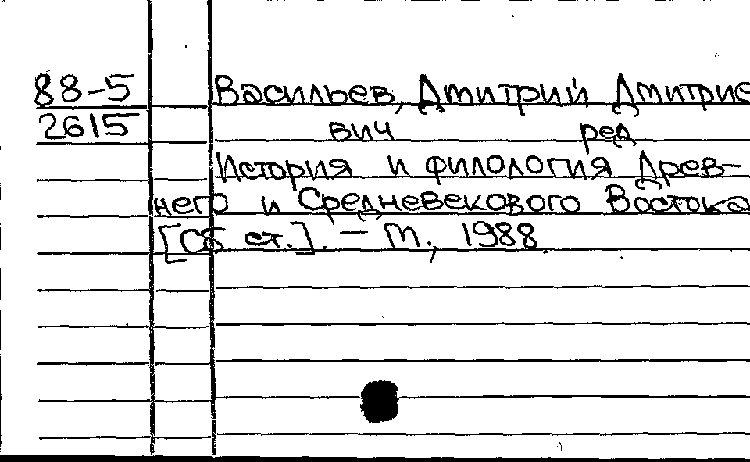 88-5 Васильев, Дмитрий Дмитрие
2615 вич ред
История и филология Древ-
него и Средневекового Востока
[Сб ст.]. - М., 1988